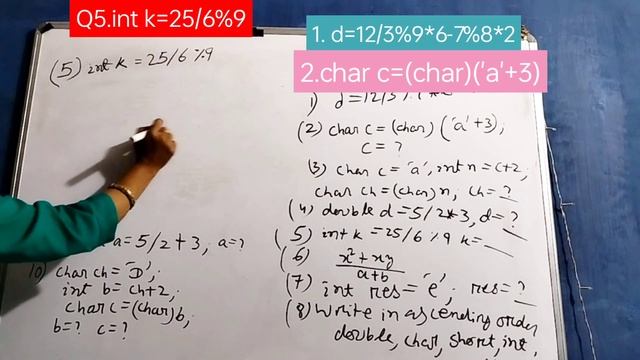 Q5.int k=25/6%9
1. d=12/3%9*6-7%8*2
2.char c=(char)('a'+3)
(5) int k = 25/6 %9
a = 5/2 + 3, a=?
10) char ch = 'D',
int b = ch+2,
char c = (char) b,
b=? c=?
1) d=12/3%
(2) char c = (char) ('a'+3);
c = ?
(3) char c = 'a', int n = c+2,
char ch = (char) n, ch = ?
(4) double d = 5/2*3, d=?
(5) int k = 25/6 %9 k=
(6) x²+xy
a+b
(7) int res = 'e', res=?
(8) Write in ascending order
double, char, short, int,